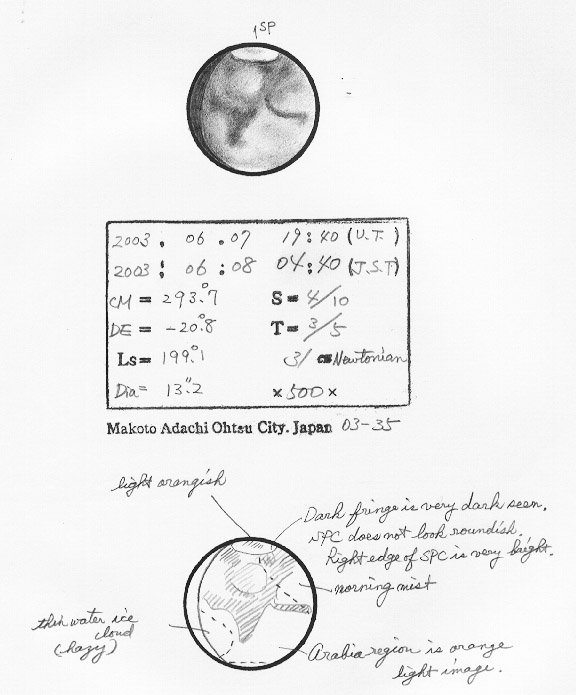 SP
2003. 06.07 19:40 (U.T.)
2003: 06:08 04:40 (J.S.T)
CM = 293.°7 S = 4/10
DE = -20.°8 T = 3/5
Ls = 199.°1 31 cm Newtonian
Dia = 13."2 ×500×
Makoto Adachi Ohtsu City. Japan 03-35
light orangish
Dark fringe is very dark seen.
SPC does not look roundish.
Right edge of SPC is very bright.
morning mist
thin water ice
cloud
(hazy)
Arabia region is orange
light image.